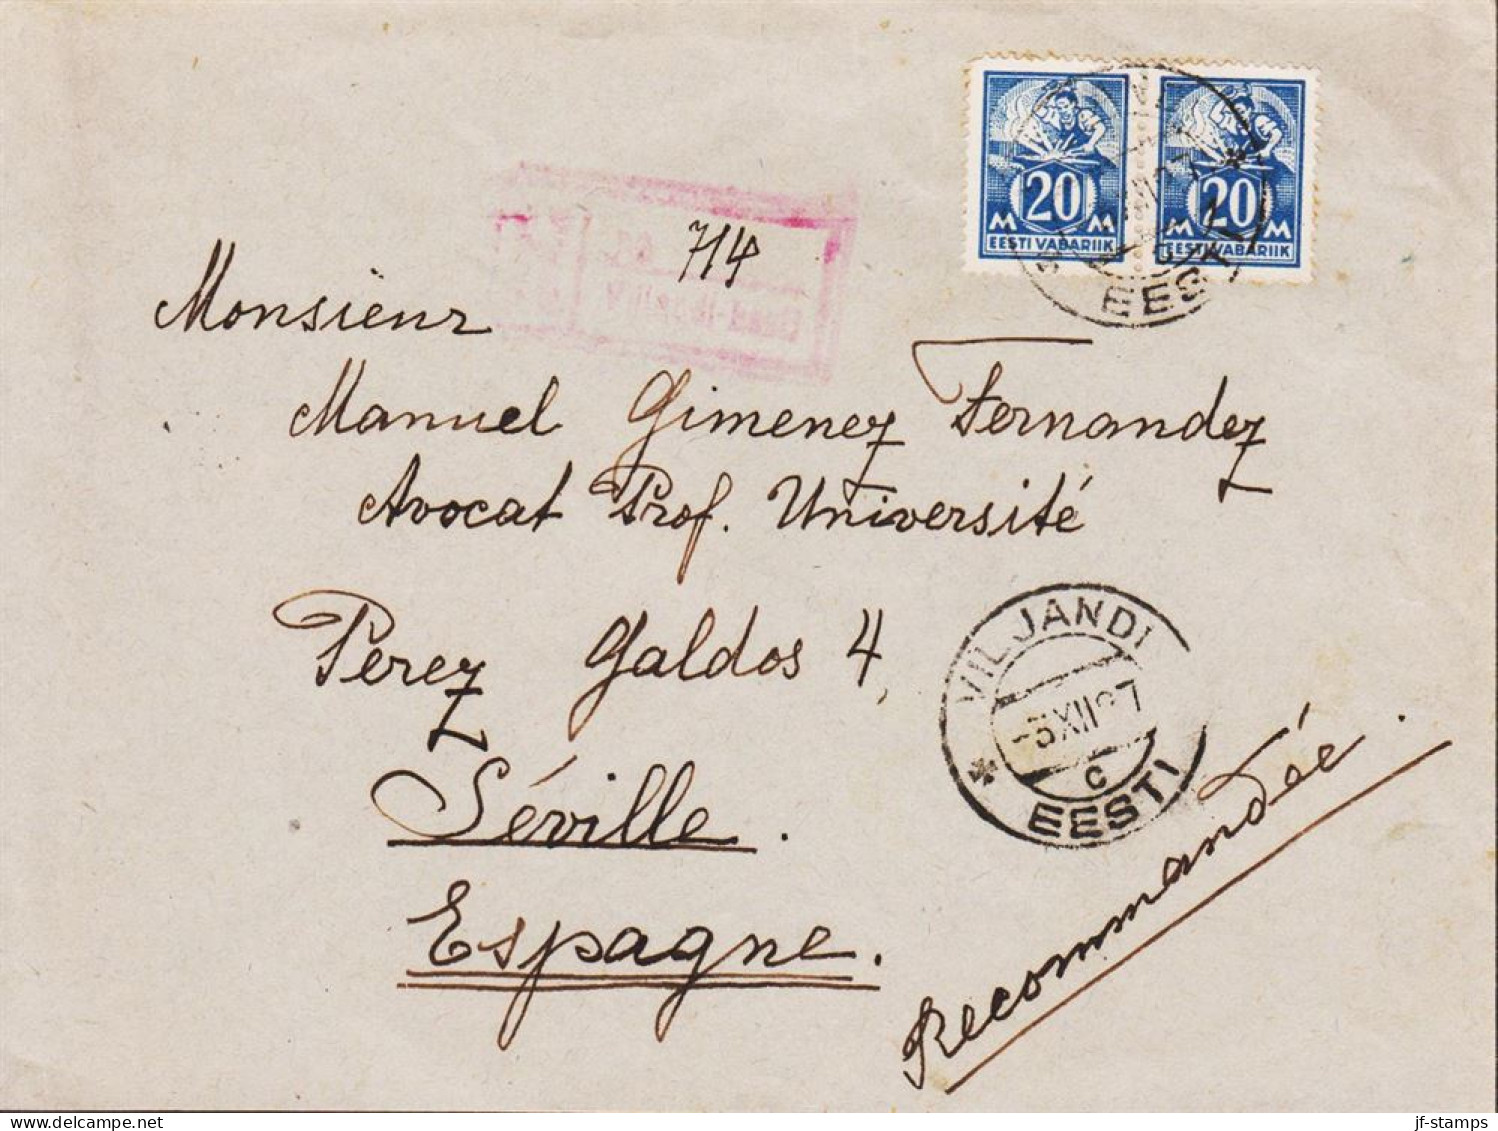 20 20
M M M M
EESTI VABARIIK EESTI VABARIIK
EESTI
714
Monsieur
Manuel Gimenez Fernandez
Avocat Prof. Université
Perez Galdos 4,
Séville.
Espagne.
VILJANDI
-3 XII 27
C
EESTI
Recommandée.
jf-stamps